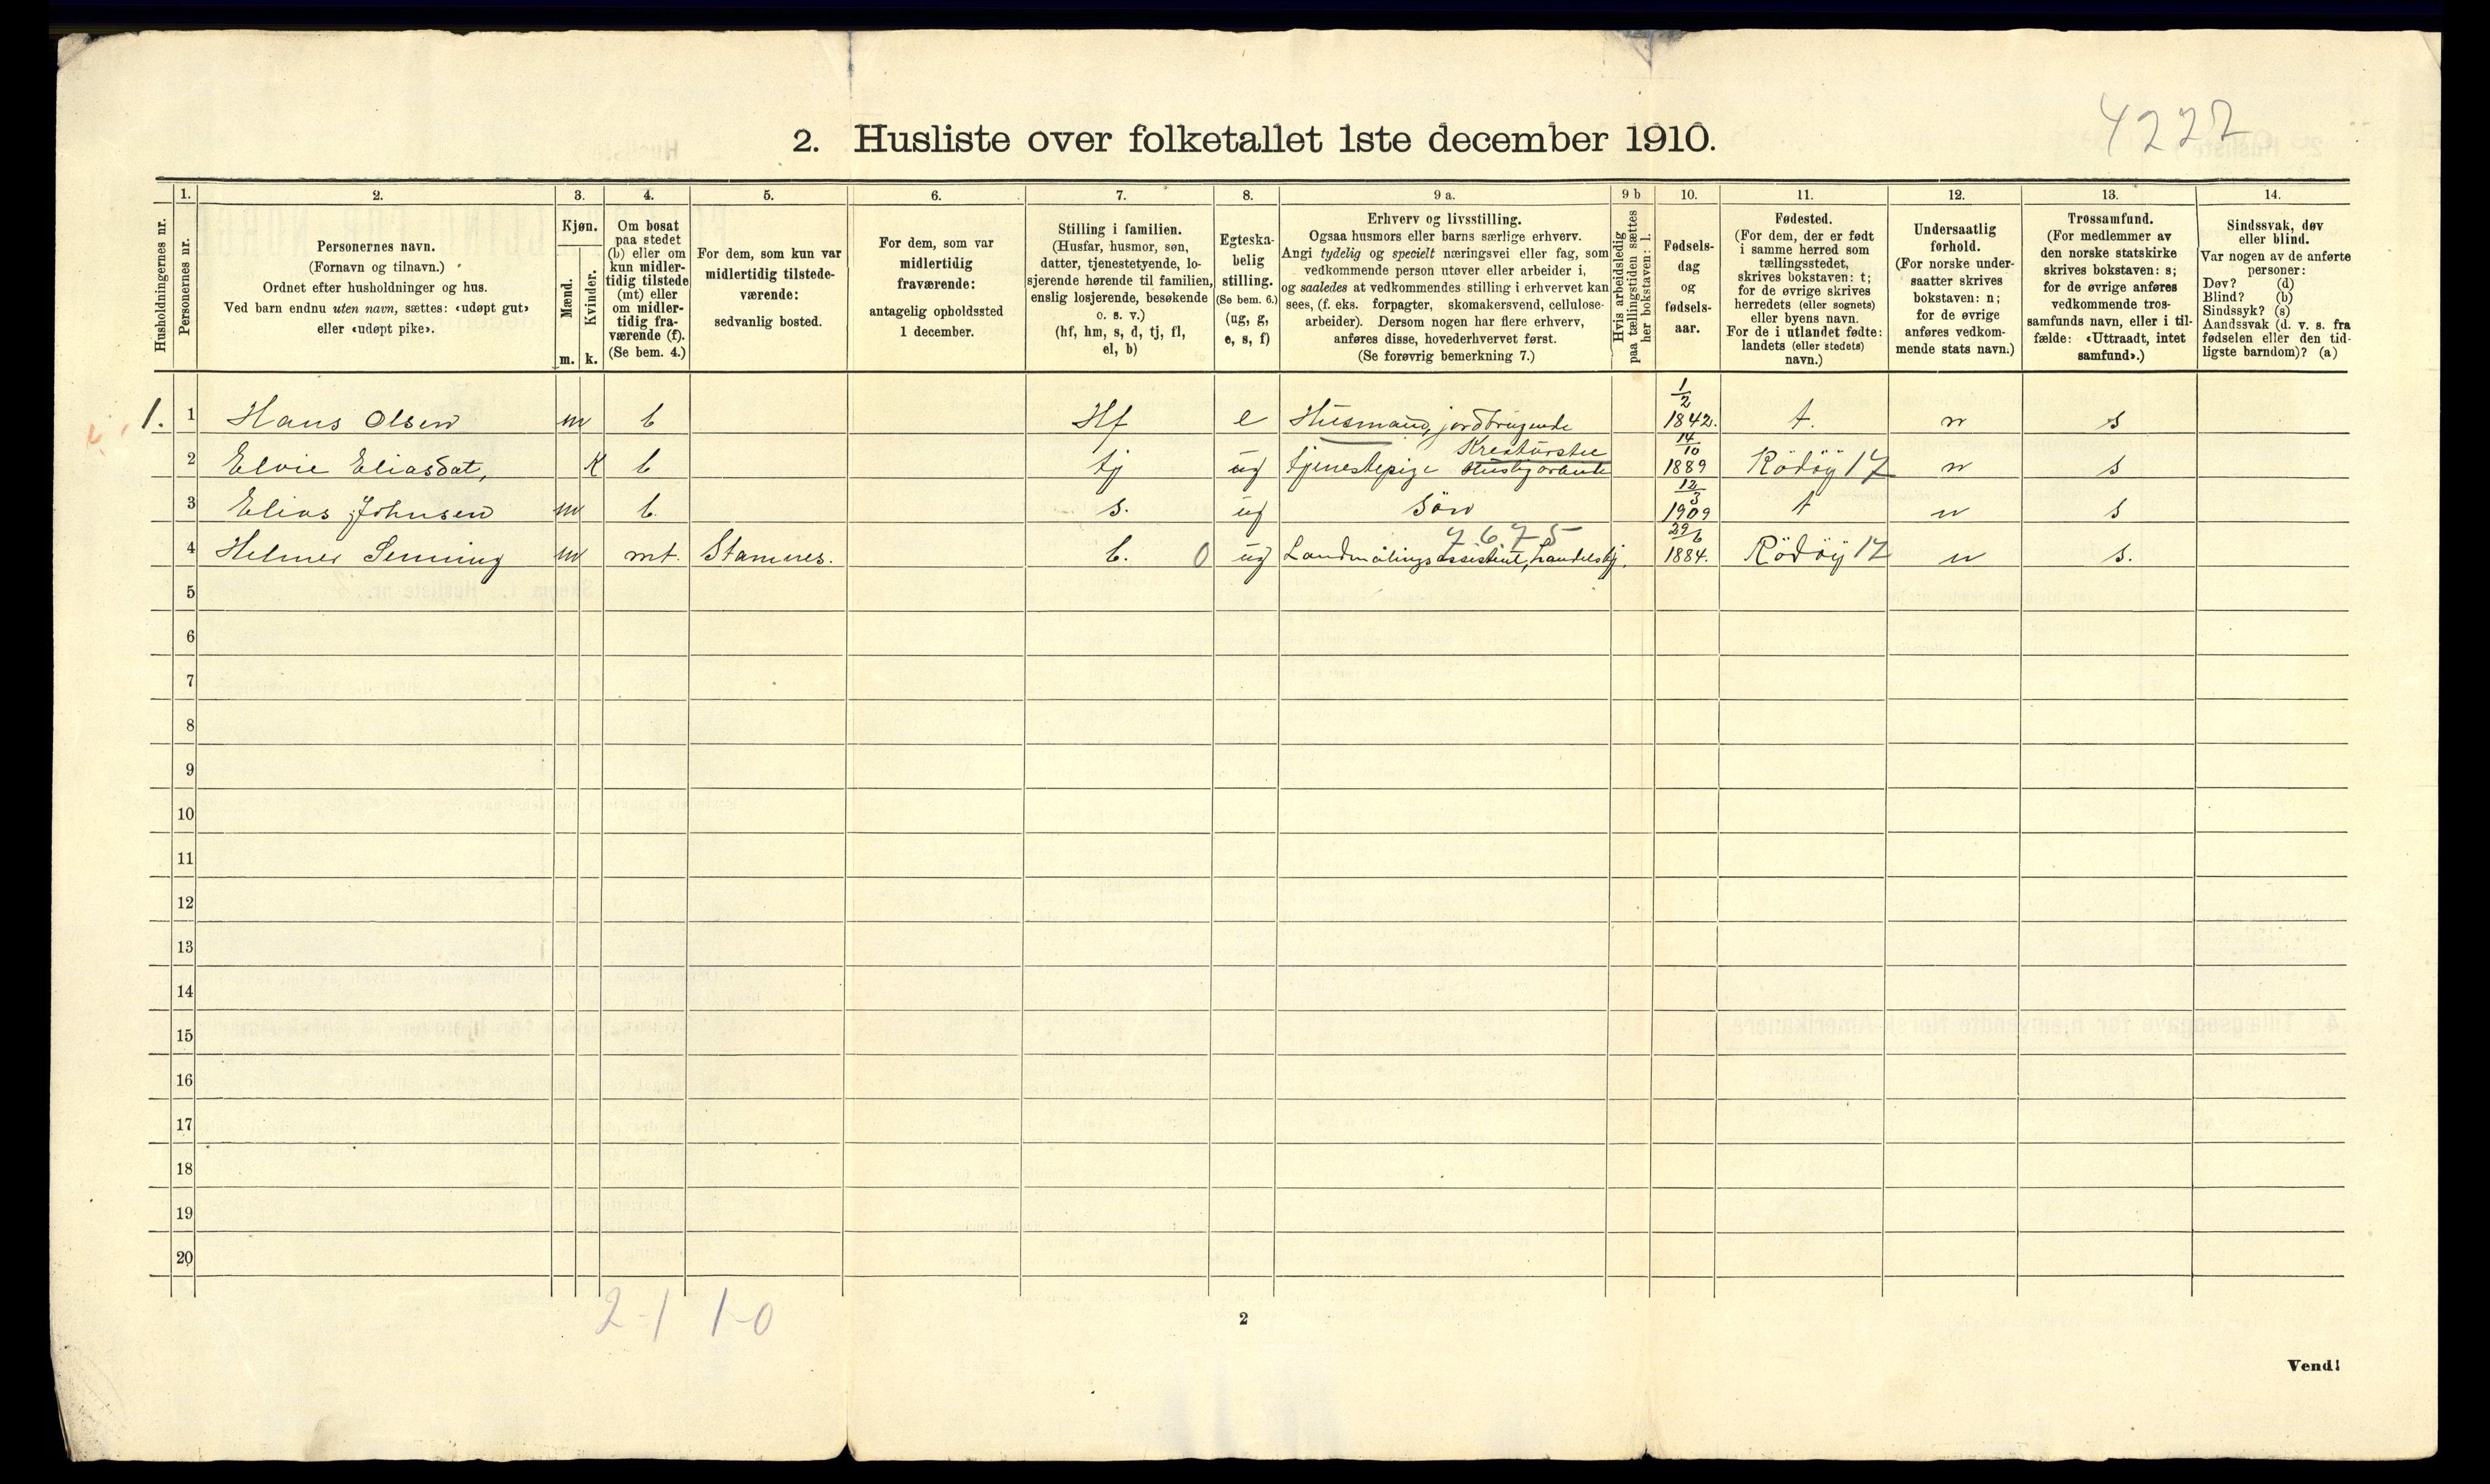 4222
2. Husliste over folketallet 1ste december 1910.
Husholdningernes nr.
1.
Personernes nr.
2.
Personernes navn.
(Fornavn og tilnavn.)
Ordnet efter husholdninger og hus.
Ved barn endnu uten navn, sættes: «udøpt gut»
eller «udøpt pike».
3.
Kjøn.
Mænd.
Kvinder.
m. k.
4.
Om bosat
paa stedet
(b) eller om
kun midler-
tidig tilstede
(mt) eller
om midler-
tidig fra-
værende (f).
(Se bem. 4.)
5.
For dem, som kun var
midlertidig tilstede-
værende:
sedvanlig bosted.
6.
For dem, som var
midlertidig
fraværende:
antagelig opholdssted
1 december.
7.
Stilling i familien.
(Husfar, husmor, søn,
datter, tjenestetyende, lo-
sjerende hørende til familien,
enslig losjerende, besøkende
o. s. v.)
(hf, hm, s, d, tj, fl,
el, b)
8.
Egteska-
belig
stilling.
(Se bem. 6.)
(ug, g,
e, s, f)
9 a.
Erhverv og livsstilling.
Ogsaa husmors eller barns særlige erhverv.
Angi tydelig og specielt næringsvei eller fag, som
vedkommende person utøver eller arbeider i,
og saaledes at vedkommendes stilling i erhvervet kan
sees, (f. eks. forpagter, skomakersvend, cellulose-
arbeider). Dersom nogen har flere erhverv,
anføres disse, hovederhvervet først.
(Se forøvrig bemerkning 7.)
9 b
Hvis arbeidsledig
paa tællingstiden sættes
her bokstaven: l.
10.
Fødsels-
dag
og
fødsels-
aar.
11.
Fødested.
(For dem, der er født
i samme herred som
tællingsstedet,
skrives bokstaven: t;
for de øvrige skrives
herredets (eller sognets)
eller byens navn.
For de i utlandet fødte:
landets (eller stedets)
navn.)
12.
Undersaatlig
forhold.
(For norske under-
saatter skrives
bokstaven: n;
for de øvrige
anføres vedkom-
mende stats navn.)
13.
Trossamfund.
(For medlemmer av
den norske statskirke
skrives bokstaven: s;
for de øvrige anføres
vedkommende tros-
samfunds navn, eller i til-
fælde: «Uttraadt, intet
samfund».)
14.
Sindssvak, døv
eller blind.
Var nogen av de anførte
personer:
Døv? (d)
Blind? (b)
Sindssyk? (s)
Aandssvak (d. v. s. fra
fødselen eller den tid-
ligste barndom)? (a)
1. 1 Hans Olsen m b Hf e Husmand, jordbrugende 1/2 1842. t. n s
2 Elvie Eliasdat, K b tj ug tjenestepige Kreaturstel 14/10 1889 Rödöy 17 n s
3 Elias Johnsen m b. s. ug Sön 12/3 1909 t n s
7.6.75
4 Helmer Senning m mt. Stamnes. b. 0 ug Landmålingsassistent, handelsbj. 29/6 1884. Rödöy 17 n s.
5
6
7
8
9
10
11
12
13
14
15
16
17
18
19
20
2-1 1-0
2
Vend!